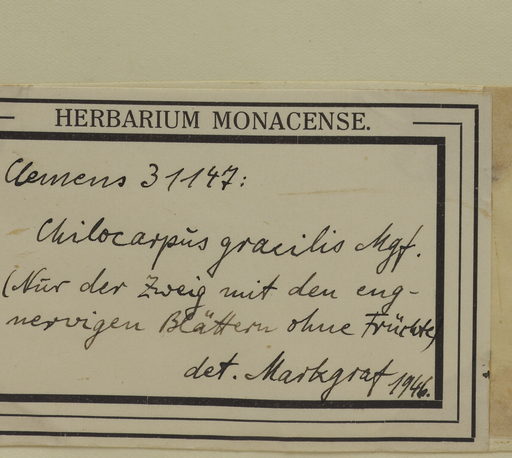 HERBARIUM MONACENSE.
Clemens 31147:
Chilocarpus gracilis Mgf.
(Nur der Zweig mit den eng-
nervigen Blättern ohne Früchte)
det. Markgraf 1946.